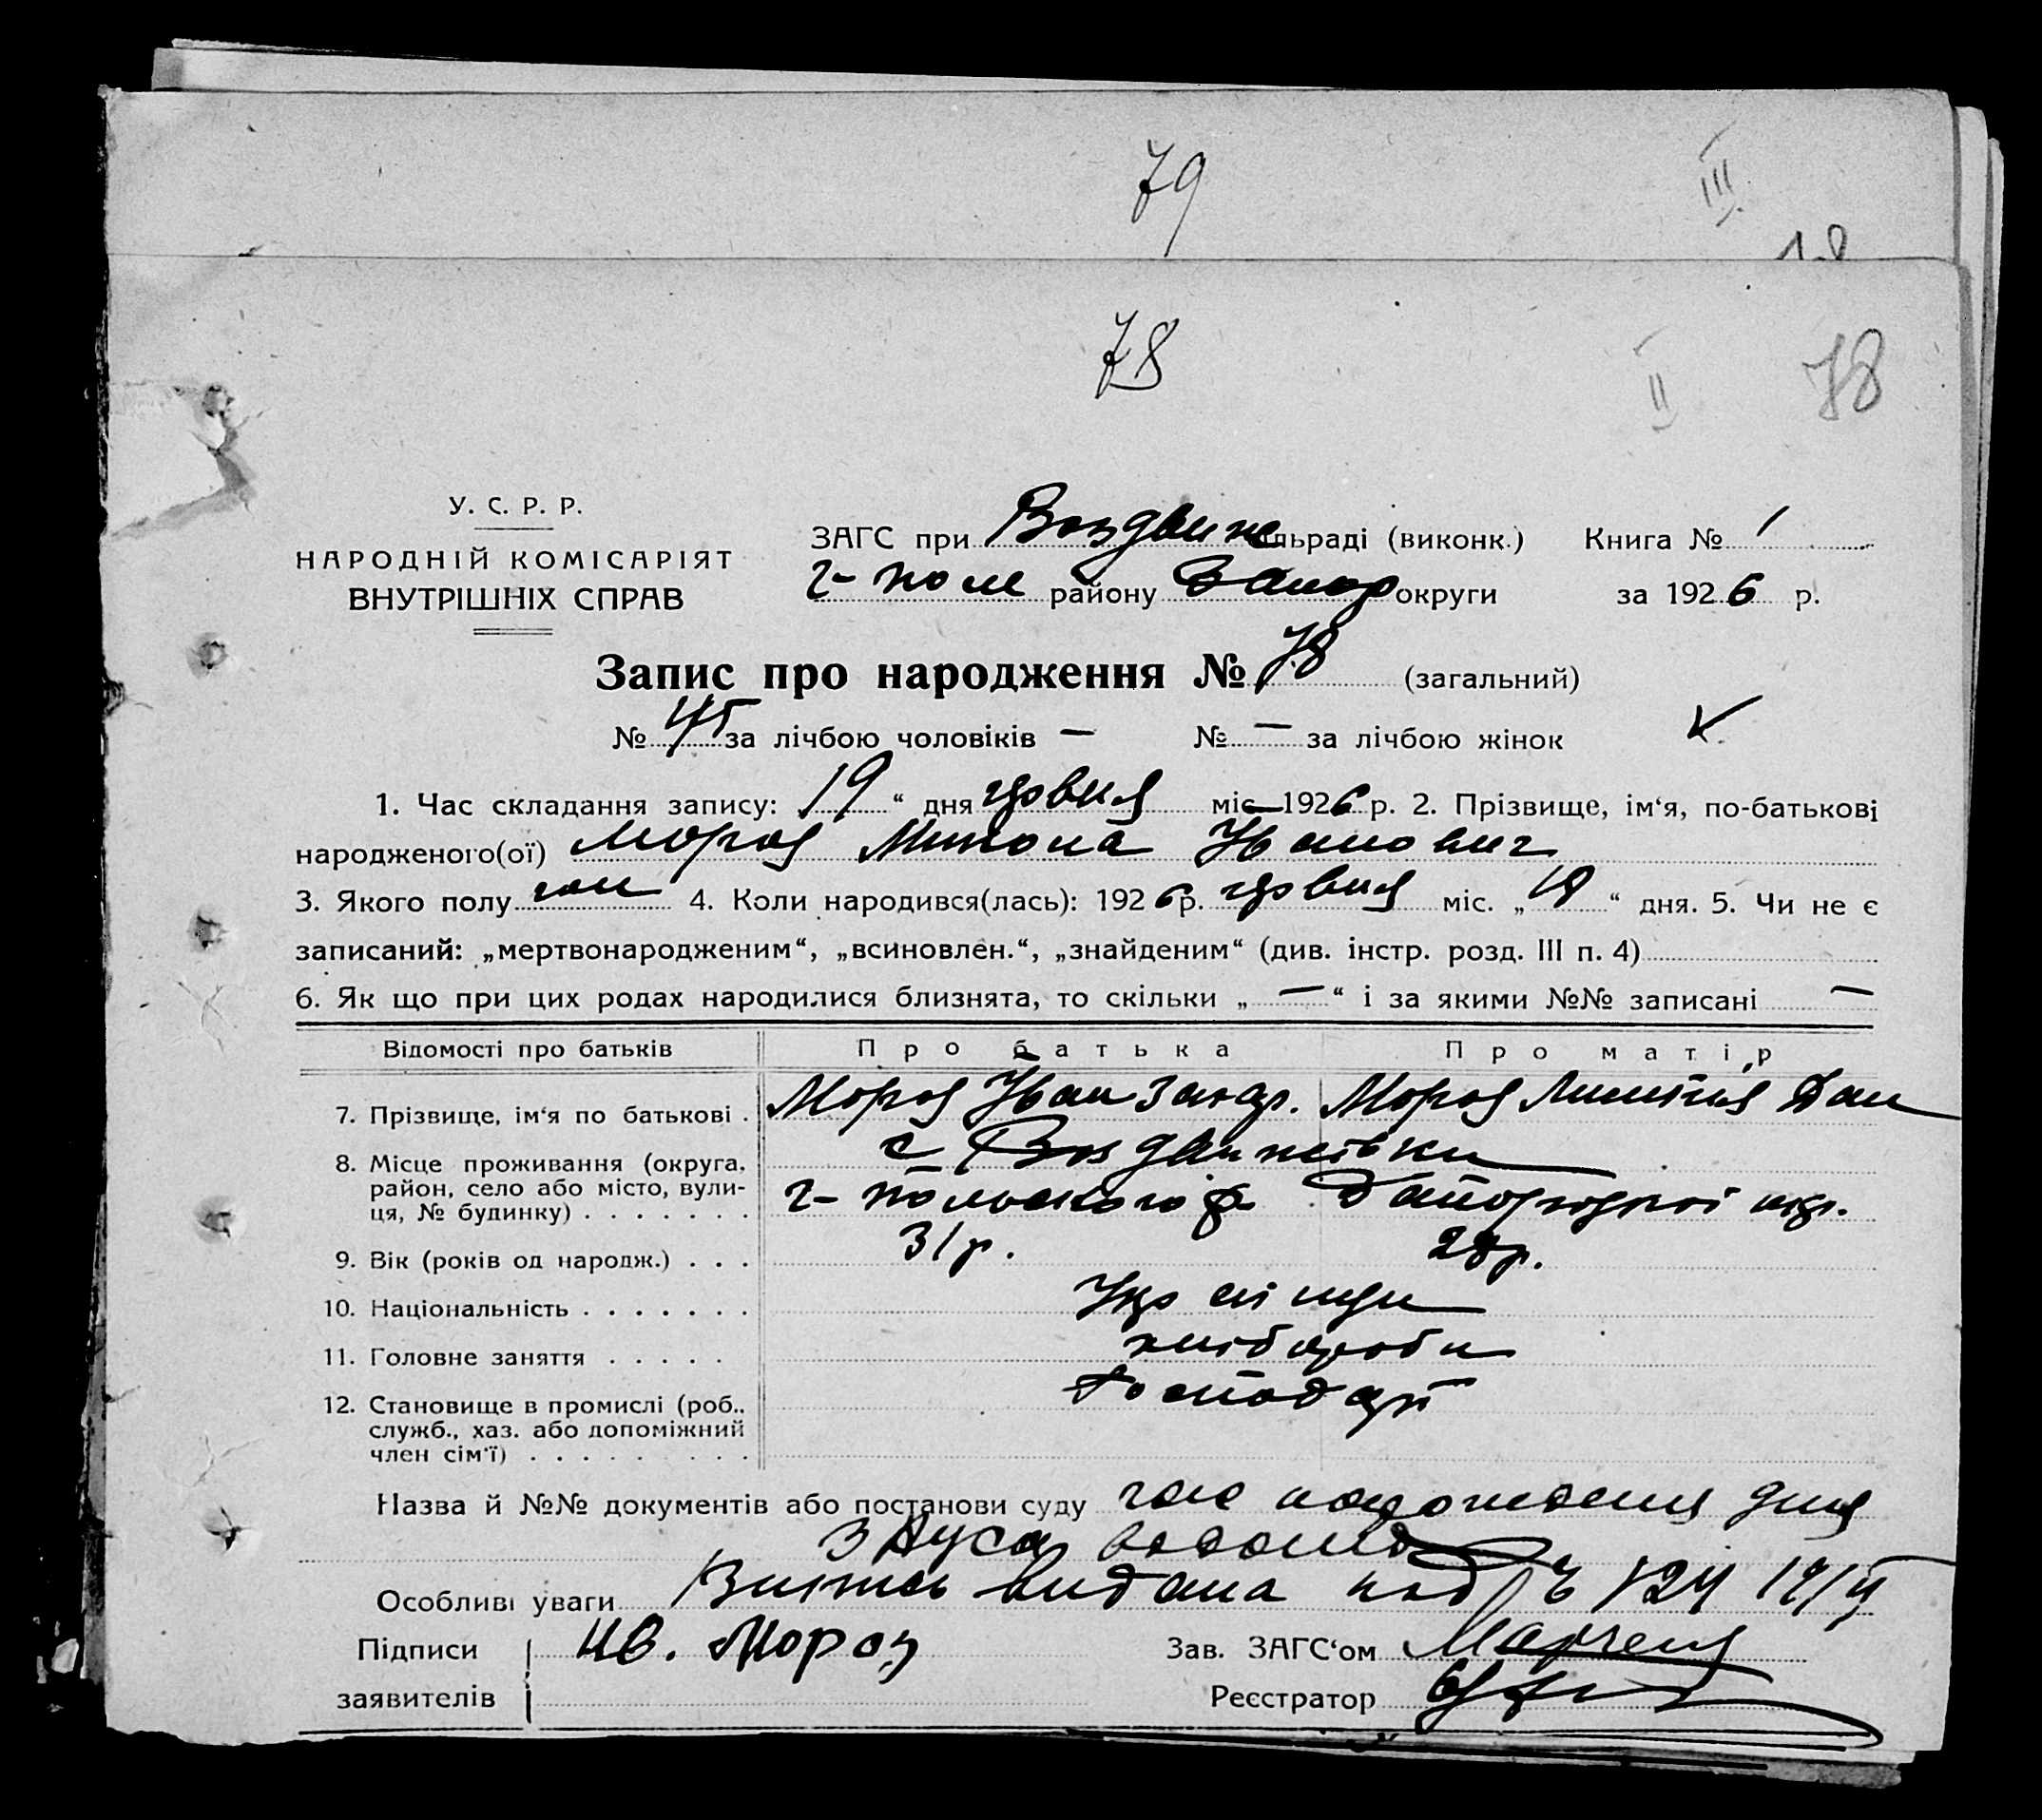 79
III
78
II
78
У. С. Р. Р.
НАРОДНІЙ КОМІСАРІЯТ
ВНУТРІШНІХ СПРАВ
ЗАГС при Воздвиж сільраді (виконк.) Книга № 1
Г-поле району Запор округи за 1926 р.
Запис про народження № 78 (загальний)
№ 45 за лічбою чоловіків — № — за лічбою жінок
1. Час складання запису: 19 “ дня червня міс 1926 р. 2. Прізвище, ім‘я, по-батькові
народженого(ої) Мороз Микола Іванович
3. Якого полу чол 4. Коли народився(лась): 1926 р. червня міс. „ “ дня. 5. Чи не є
записаний: „мертвонародженим“, „всиновлен.“, „знайденим“ (див. інстр. розд. III п. 4)
6. Як що при цих родах народилися близнята, то скільки „ — “ і за якими №№ записані —
Відомості про батьків Про батька Про матір
7. Прізвище, ім‘я по батькові . Мороз Іван Мороз
8. Місце проживання (округа, с Воздвижівки
район, село або місто, вули- Г-польского р. Запорізької окр.
ця, № будинку) . . . . . . .
9. Вік (років од народж.) . . . 31 р. 28 р.
10. Національність . . . . . . . Українци
11. Головне заняття . . . . . хлібороби
12. Становище в промислі (роб., Господарі
служб., хаз. або допоміжний
член сім‘ї) . . . . . . . .
Назва й №№ документів або постанови суду дня
Особливі уваги Випись видана под № 124
Підписи Ив. Мороз Зав. ЗАГС‘ом
заявителів Реєстратор